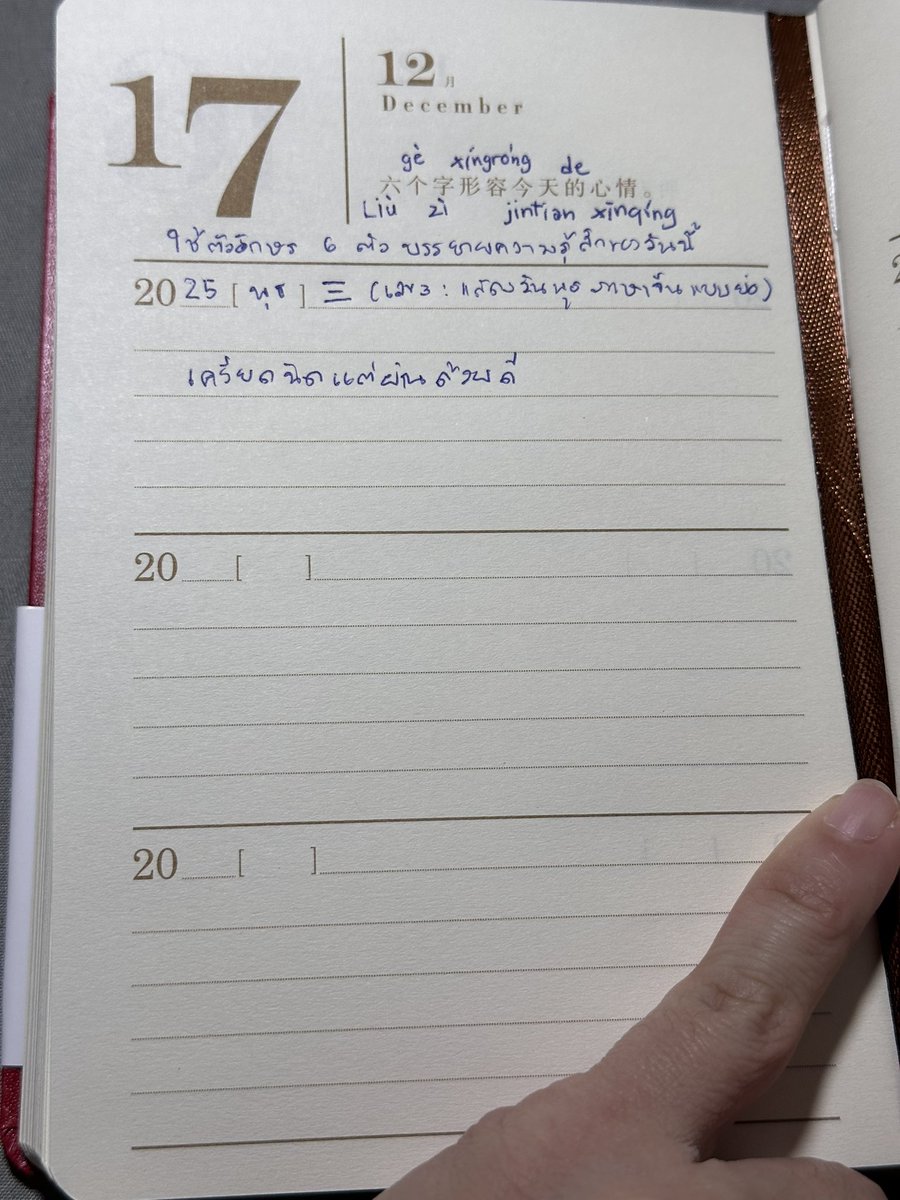 17
12月
December
gè xíngróng de
六个字形容今天的心情。
Liù zì jīntiān xīnqíng
ใช้ตัวอักษร 6 ตัว บรรยายความรู้สึกของวันนี้
20 25 [ พุธ ] 三 (เลข3 : แสดงวันพุธ ภาษาจีนแบบย่อ)
เครียดนิดแต่ผ่านด้วยดี
20 [ ]
20 [ ]